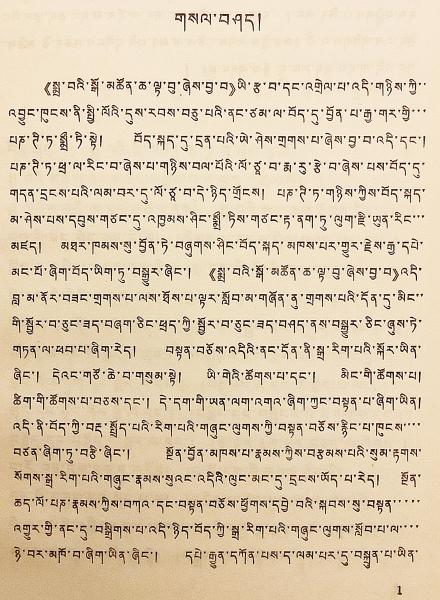 གསལ་བཤད།
《སྨྲ་བའི་སྒོ་མཚོན་ཆ་ལྟ་བུ་ཞེས་བྱ་བ》ཡི་རྩ་བ་དང་འགྲེལ་པ་འདི་གཉིས་ཀྱི་
འབྱུང་ཁུངས་ནི་སྤྱི་ལོའི་དུས་རབས་བཅུ་པའི་ནང་ཙམ་ལ་བོད་དུ་བྱོན་པ་རྒྱ་གར་གྱི་
པཎ་ཌི་ཏ་སྨྲྀ་ཏི་སྟེ། བོད་སྐད་དུ་དྲན་པའི་ཡེ་ཤེས་གྲགས་པ་ཞེས་བྱ་བ་འདི་དང་།
པཎ་ཌི་ཏ་ཕྲ་ལ་རིང་བ་ཞེས་པ་གཉིས་བལ་པོའི་ལོ་ཙཱ་བ་རྨ་རུ་རྩེ་བ་ཞེས་པས་བོད་དུ་
གདན་དྲངས་པའི་ལམ་བར་དུ་ལོ་ཙཱ་བ་དེ་ཉིད་གྲོངས། པཎ་ཌི་ཏ་གཉིས་ཀྱིས་བོད་སྐད་
མ་ཤེས་པས་དབུས་གཙང་དུ་འཁྱམས་ཤིང་སྨྲྀ་ཏིས་གཙང་རྟ་ནག་ཏུ་ལུག་རྫི་ཡུན་རིང་
མཛད། མཐར་ཁམས་སུ་བྱོན་ཏེ་བཞུགས་ཤིང་བོད་སྐད་མཁས་པར་གྱུར་རྗེས་རྒྱ་དཔེ་
མང་པོ་ཞིག་བོད་ཡིག་ཏུ་བསྒྱུར་ཞིང་། 《སྨྲ་བའི་སྒོ་མཚོན་ཆ་ལྟ་བུ་ཞེས་བྱ་བ》འདི་
བླ་མ་ནོར་བཟང་གྲགས་པ་ལས་ཐོས་པ་ལྟར་སློབ་མ་གཞོན་ནུ་གྲགས་པའི་དོན་དུ་མིང་
གི་སྦྱོར་བ་ཅུང་ཟད་བཤག་ཅིང་ཕྲད་ཀྱི་སྦྱོར་བ་ཅུང་ཟད་བཤད་ནས་བསྒྱུར་ཅིང་ཞུས་ཏེ་
གཏན་ལ་ཕབ་པ་ཞིག་རེད། བསྟན་བཅོས་འདིའི་ནང་དོན་ནི་སྒྲ་རིག་པའི་སྐོར་ཡིན་
ཞིང་། དེའང་གཙོ་ཆེ་བ་གསུམ་སྟེ། ཡི་གེའི་ཚོགས་པ་དང་། མིང་གི་ཚོགས་པ།
ཚིག་གི་ཚོགས་པ་བཅས་དང་། དེ་དག་གི་ཡན་ལག་འགའ་ཞིག་ཀྱང་བསྟན་པ་ཞིག་ཡིན།
འདི་ནི་བོད་ཀྱི་བརྡ་སྤྲོད་པའི་རིག་གཞུང་ལུགས་ཀྱི་བསྟན་བཅོས་རྙིང་པ་ཁུངས་
བཙན་ཞིག་ཏུ་བརྩི་ཞིང་། སྔོན་བྱོན་མཁས་པ་རྣམས་ཀྱིས་བརྩམས་པའི་སུམ་རྟགས་
སོགས་སྒྲ་རིག་པའི་གཞུང་རྣམས་སུའང་འདིའི་ལུང་མང་དུ་དྲངས་ཡོད་པ་རེད། སྔོན་
ཆད་ལོ་པཎ་རྣམས་ཀྱིས་བཀའ་དང་བསྟན་བཅོས་ཕྱོགས་དབྱེ་བའི་སྐབས་སུ་བསྟན་
འགྱུར་གྱི་ནང་དུ་བསྒྲིགས་པ་འདི་ཉིད་བོད་ཀྱི་སྒྲ་རིག་པའི་གཞུང་ལུགས་སློབ་པ་ལ་
ཉེ་བར་མཁོ་བ་ཞིག་ཡིན་ཞིང་། དཔེ་རྒྱུན་དཀོན་པས་ད་ལམ་པར་དུ་བསྐྲུན་པ་ཡིན་
1